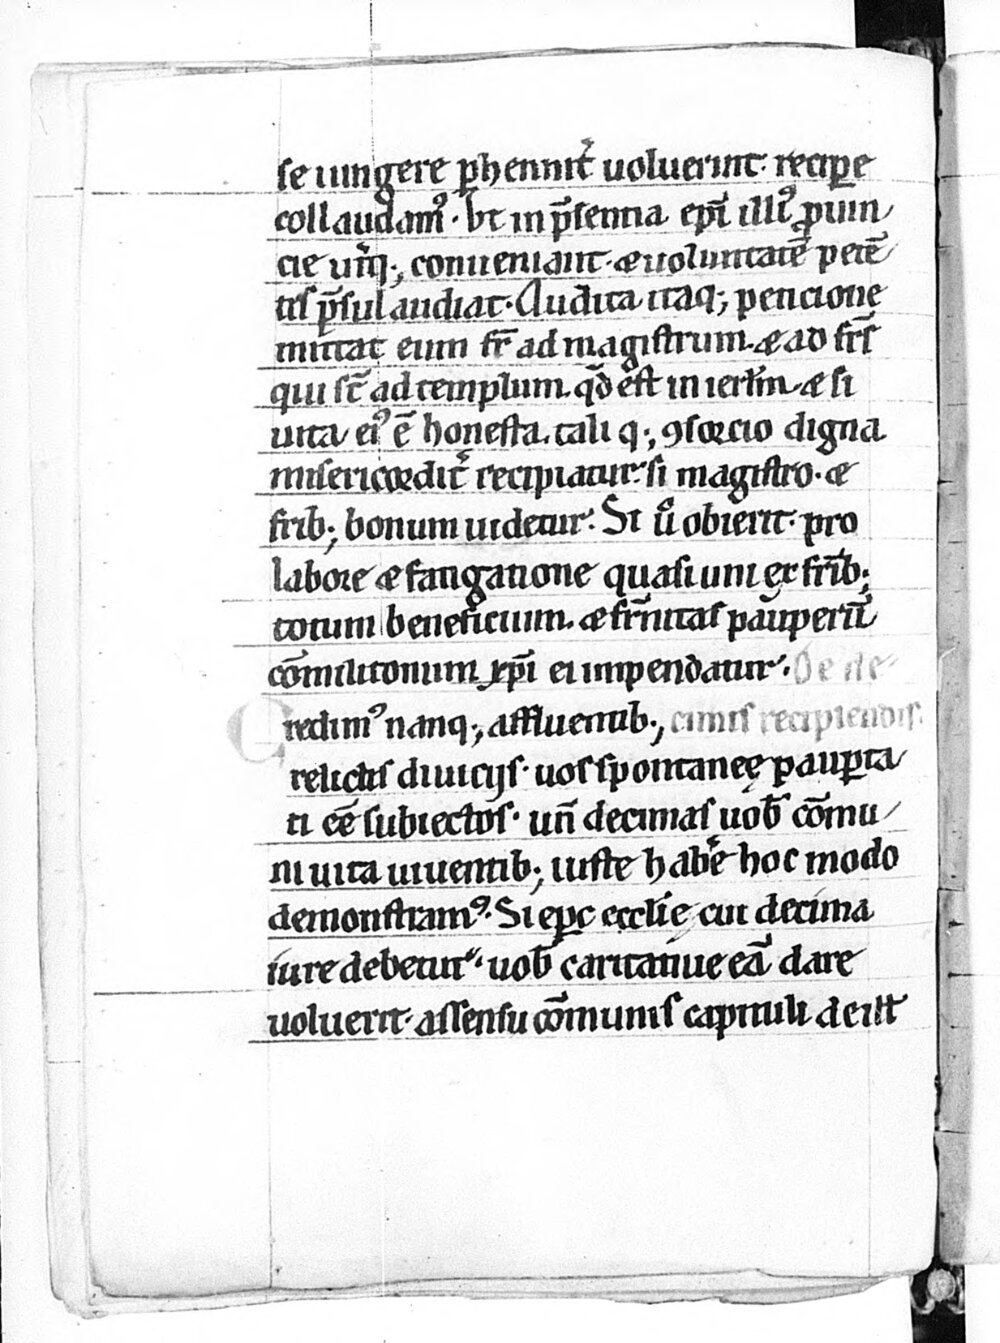 se iungere ꝑhenniť uoluerint· recipe
collaudamꝰ· Ut in p̄sentia ep̄i illiꝰ ꝓuin
cie ut̓iq; conueniant· & uoluntatē petē
tis p̄sul audiat· Audita itaq; peticione
mittat eum fr̄ ad magistrum· & ad fr̄s
qui st̄ ad templum· qđ est in ierl̄m· & si
uita eiꝰ ē honesta· tali q; ꝯsorcio digna
misericordit̓ recipiatur· si magistro· &
frib; bonum uidetur· Si u̓ obierit· pro
labore & fatigatione quasi uni ex fr̄ib;
totum beneficium· & fr̄nitas pauperū
cōmilitonum xp̄i ei impendatur· De de
Credimꝰ nanq; affluentib; cimis recipiendis.
relictis diuicijs· uos spontaneę pauꝑta
ti eē subiectos· un̄ decimas uoƀ cōmu
ni uita uiuentib; iuste hab̓e hoc modo
demonstramꝰ· Si ep̄c eccl̄ię cui decima
iure debetur· uoƀ caritatiue eā dare
uoluerit· assensu cōmunis capituli de ill̄